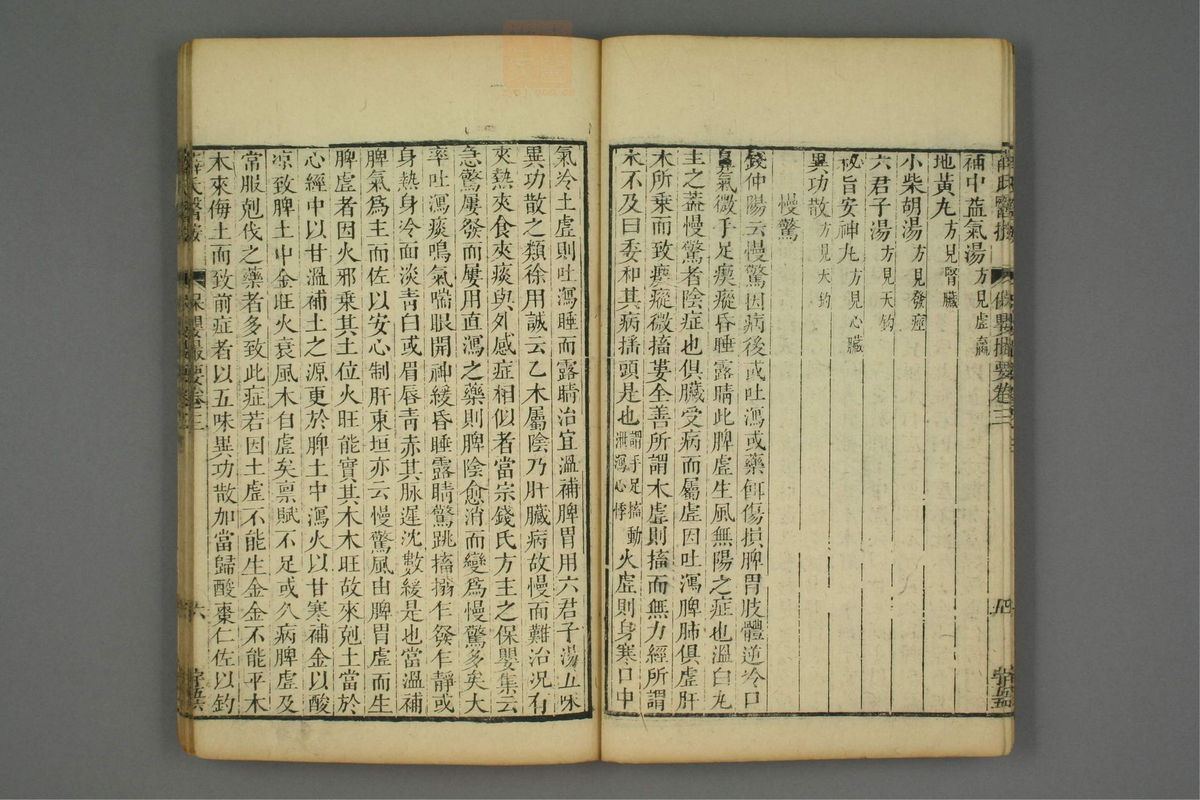 補中益氣湯方見虛羸
地黃丸方見腎臟
小柴胡湯方見發痙
六君子湯方見天釣
秘旨安神丸方見心臟
異功散方見天釣
慢驚
錢仲陽云慢驚因病後或吐瀉或藥餌傷損脾胃肢體逆冷口
鼻氣微手足瘈瘲昏睡露睛此脾虛生風無陽之症也溫白丸
主之蓋慢驚者陰症也俱臟受病而屬虛因吐瀉脾肺俱虛肝
木所乘而致瘈瘲微搐婁全善所謂木虛則搐而無力經所謂
木不及曰委和其病搖頭是也謂手足搐動泄瀉心悸火虛則身寒口中
氣冷土虛則吐瀉睡而露睛治宜溫補脾胃用六君子湯五味
異功散之類徐用誠云乙木屬陰乃肝臟病故慢而難治況有
夾熱夾食夾痰與外感症相似者當宗錢氏方主之保嬰集云
急驚屢發而屢用直瀉之藥則脾陰愈消而變爲慢驚多矣大
率吐瀉痰鳴氣喘眼開神緩昏睡露睛驚跳搐搦乍發乍靜或
身熱身冷面淡青白或眉唇青赤其脉遲沈數緩是也當溫補
脾氣爲主而佐以安心制肝東垣亦云慢驚風由脾胃虛而生
脾虛者因火邪乘其土位火旺能實其木木旺故來剋土當於
心經中以甘溫補土之源更於脾土中瀉火以甘寒補金以酸
凉致脾土中金旺火衰風木自虛矣禀賦不足或久病脾虛及
常服剋伐之藥者多致此症若因土虛不能生金金不能平木
木來侮土而致前症者以五味異功散加當歸酸棗仁佐以釣